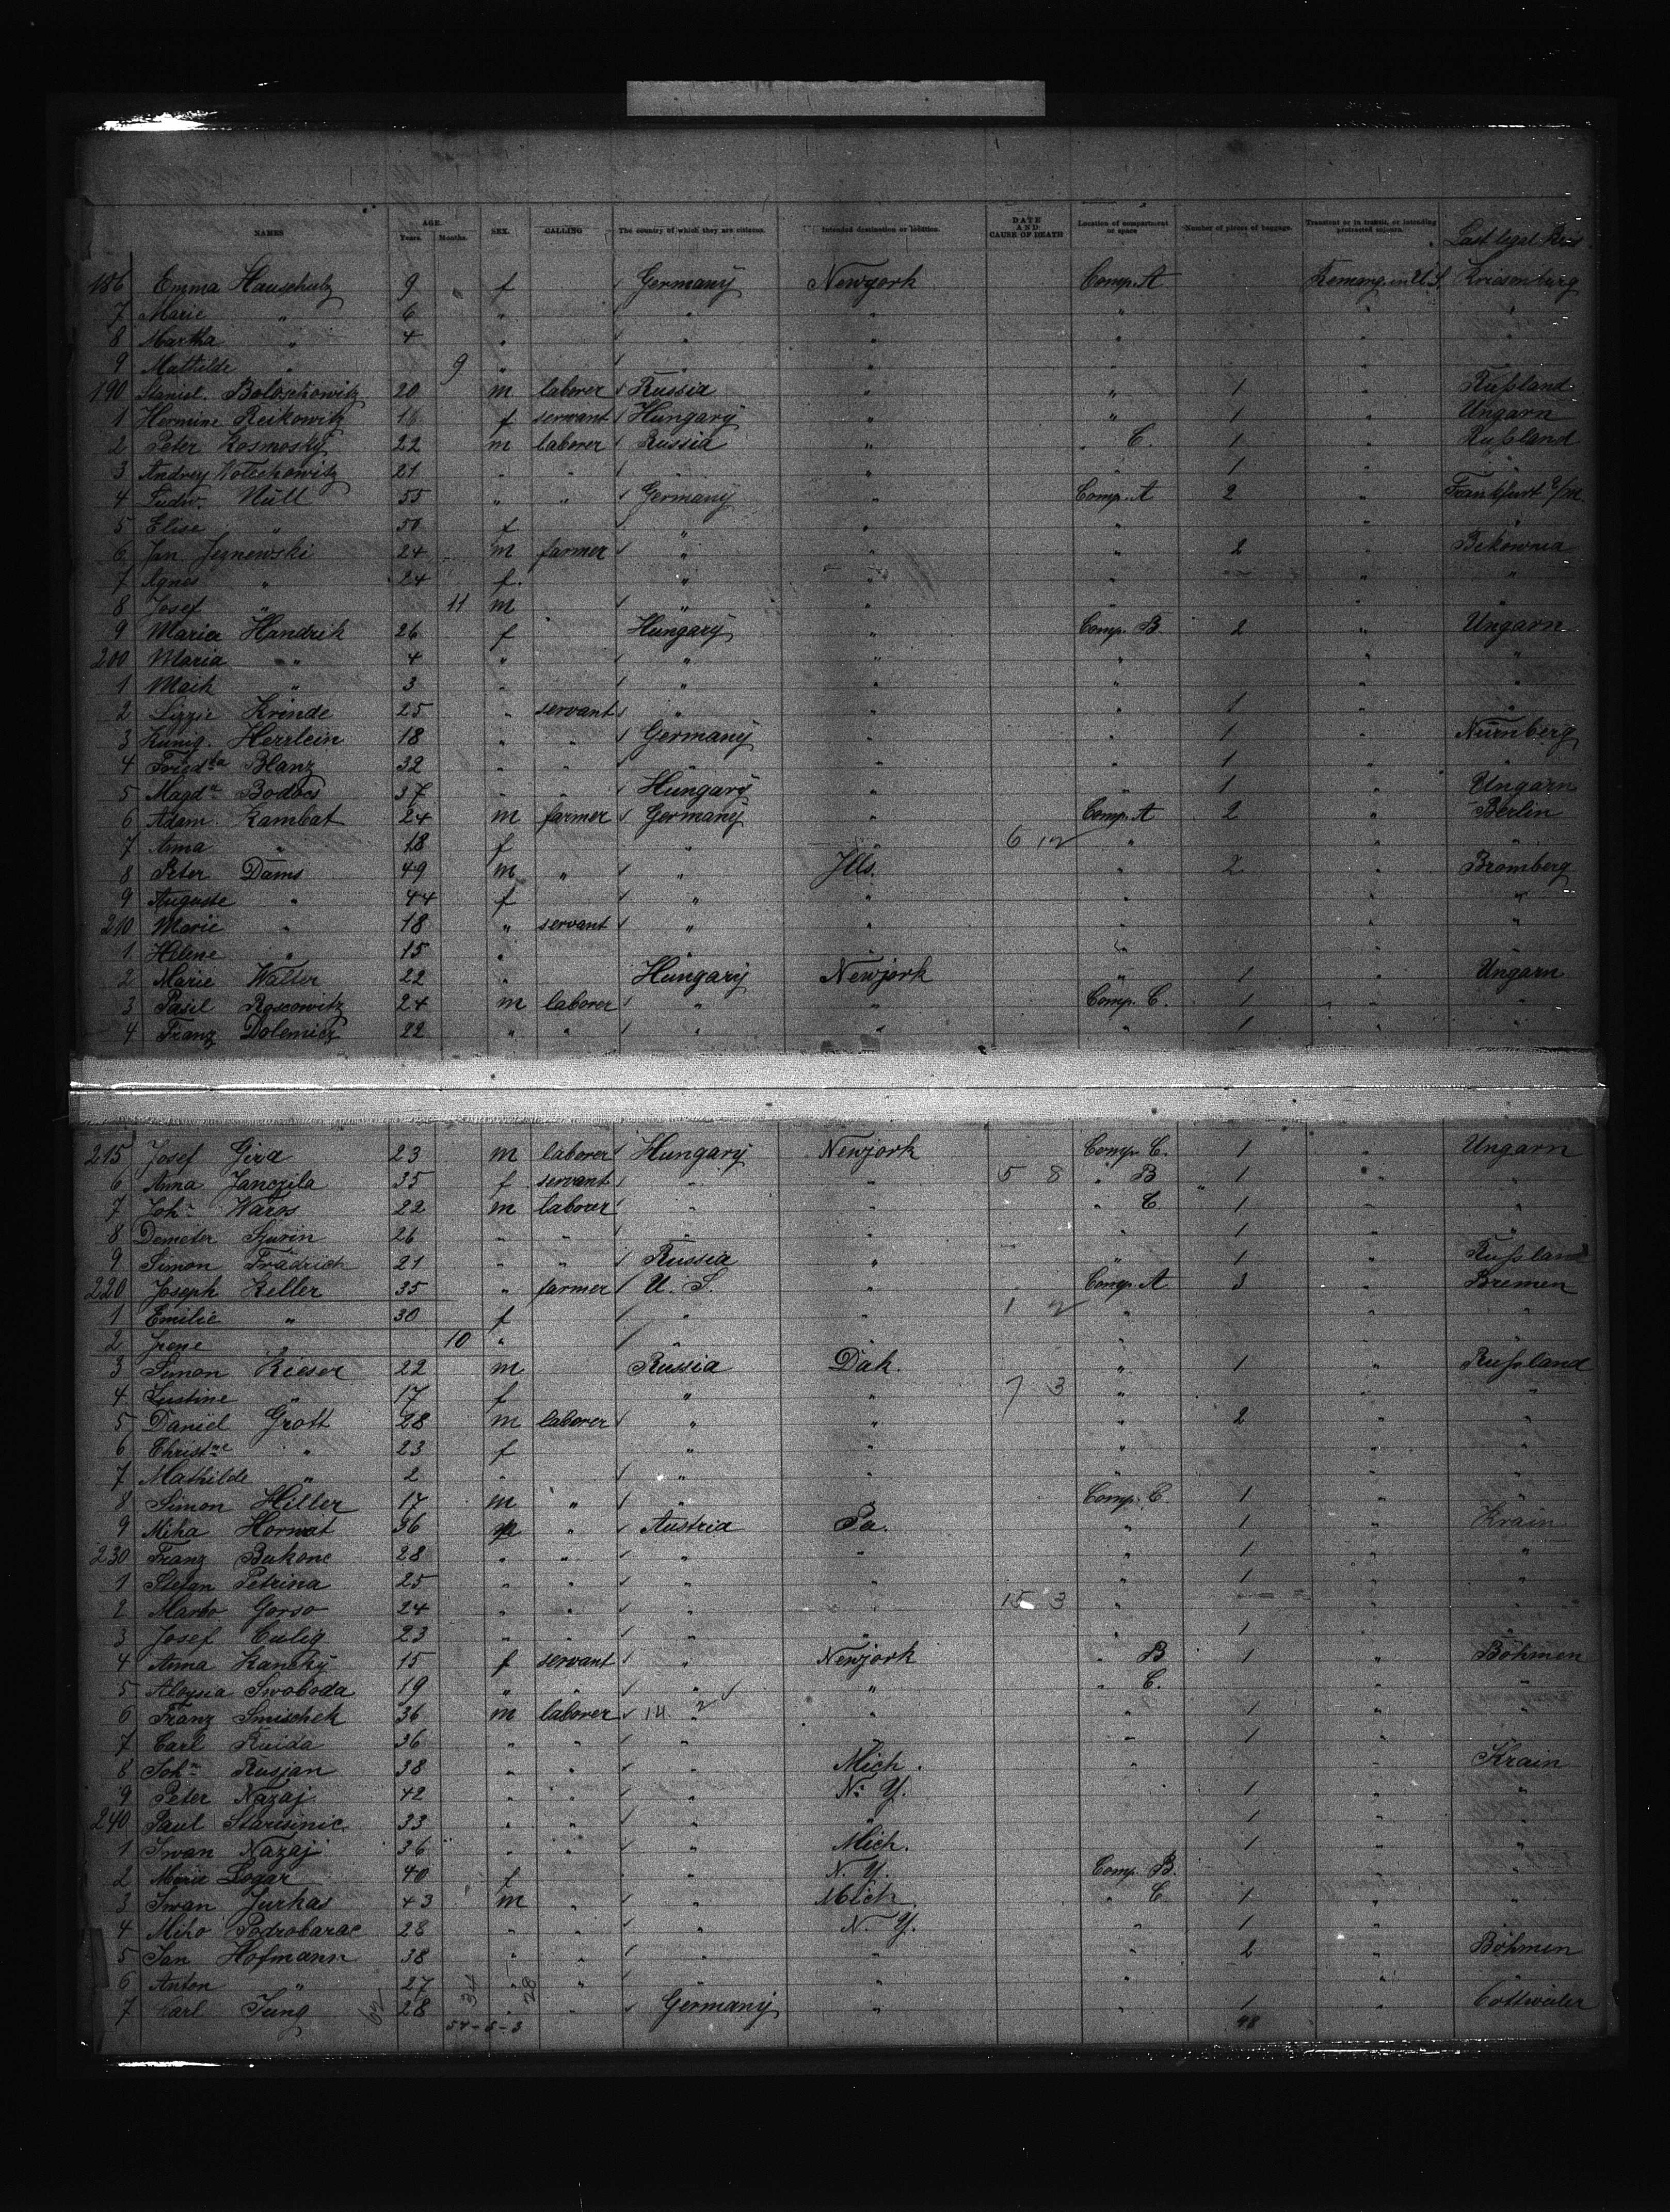 NAMES AGE. Years. Months. SEX. CALLING The country of which they are citizens. Intended destination or location. DATE AND CAUSE OF DEATH Location of compartment or space Number of pieces of baggage. Transient or in transit, or intending protracted sojourn. Last legal Res
186 Emma Hauschulz 9 f Germany Newyork Comp. A Remang. in U.S. Kriesenburg
7 Marie " 6 " " " " " "
8 Martha " 4 " " " " " "
9 Mathilde " 9 " " " " "
190 Stanisl. Boloschowitz 20 m laborer Russia " " 1 " Rußland
1 Hermine Reikowitz 16 f servant Hungary " " 1 " Ungarn
2 Peter Kosmosky 22 m laborer Russia " " C. 1 " Rußland
3 Andrey Wotschowitz 21 " " " " " 1 " "
4 Ludw. Null 55 " " Germany " Comp. A 2 " Frankfurt a/M.
5 Elise " 50 f " " " " "
6 Jan Jeznewski 24 m farmer " " " 2 " Bikownia
7 Agnes " 24 f. " " " " "
8 Josef " 11 m " " " " "
9 Maria Handrik 26 f Hungary " Comp. B. 2 " Ungarn
200 Maria " 4 " " " " " "
1 Maik " 3 " " " " " "
2 Lizzie Krinde 25 " servant " " " 1 " "
3 Kunig. Herrlein 18 " " Germany " " 1 " Nürnberg
4 Blanz 32 " " " " " 1 " "
5 Magda Bodocs 37 " " Hungary " " 1 " Ungarn
6 Adam Kambat 24 m farmer Germany " Comp. A 2 " Berlin
7 Anna " 18 f " " 6 12 " " "
8 Peter Dams 49 m " " Ills. " 2 " Bromberg
9 Auguste " 44 f " " " " "
210 Marie " 18 " servant " " " " "
1 Helene " 15 " " " " " "
2 Marie Walter 22 " Hungary Newjork " 1 " Ungarn
3 Pasil Roscowitz 24 m laborer " " Comp. C. 1 " "
4 Franz Dolemicz 22 " " " " " 1 " "
215 Josef Gira 23 m laborer Hungary Newjork Comp. C. 1 " Ungarn
6 Anna Janczila 35 f servant " " 5 8 " B 1 " "
7 Joh. Waros 22 m laborer " " " C 1 " "
8 Demeter 26 " " " " " 1 " "
9 Simon Frädrich 21 " " Russia " " 1 " Rußland
220 Joseph Keller 35 " farmer U. S. " Comp. A 3 " Bremen
1 Emilie " 30 f " " 1 2 " " "
2 Irene " 10 " " " " " "
3 Simon Kieser 22 m Russia Dak. " 1 " Rußland
4 Justine " 17 f " " 7 3 " " "
5 Daniel Grott 28 m laborer " " " 2 " "
6 Christne " 23 f " " " " "
7 Mathilde " 2 " " " " " "
8 Simon Hiller 17 m " " " Comp. C. 1 " "
9 Miha Horwat 36 " Austria Pa. " 1 " Krain
230 Franz Bukonc 28 " " " " " 1 " "
1 Stefan Petrina 25 " " " " " 1 " "
2 Marko Gorso 24 " " " " 15 3 " " "
3 Josef Culig 23 " " " " " 1 " "
4 Anna Kancky 15 f servant " Newjork " B 1 " Böhmen
5 Aloysia Swoboda 19 " " " " " C. " "
6 Franz Smischek 36 m laborer 14 2 " " 1 " "
7 Carl Ruida 36 " " " " " 1 " "
8 Joh. Rusjan 38 " " " Mich. " " Krain
9 Peter Nazaj 42 " " " N. Y. " 1 " "
240 Paul Starisinic 33 " " " " " 1 " "
1 Iwan Nazaj 36 " " " Mich. " 1 " "
2 Marie Logar 40 f " N. Y. Comp. B. " "
3 Iwan Jurkas 43 m " " Mich " C 1 " "
4 Miho Podrobarac 28 " " " N. Y. " 1 " "
5 Jan Hofmann 38 " " " " " 2 " Böhmen
6 Anton " 27 " " " " " " "
7 Carl Jung 28 " " Germany " " 1 " Cottweiler
62 34 28
54-5-3 48